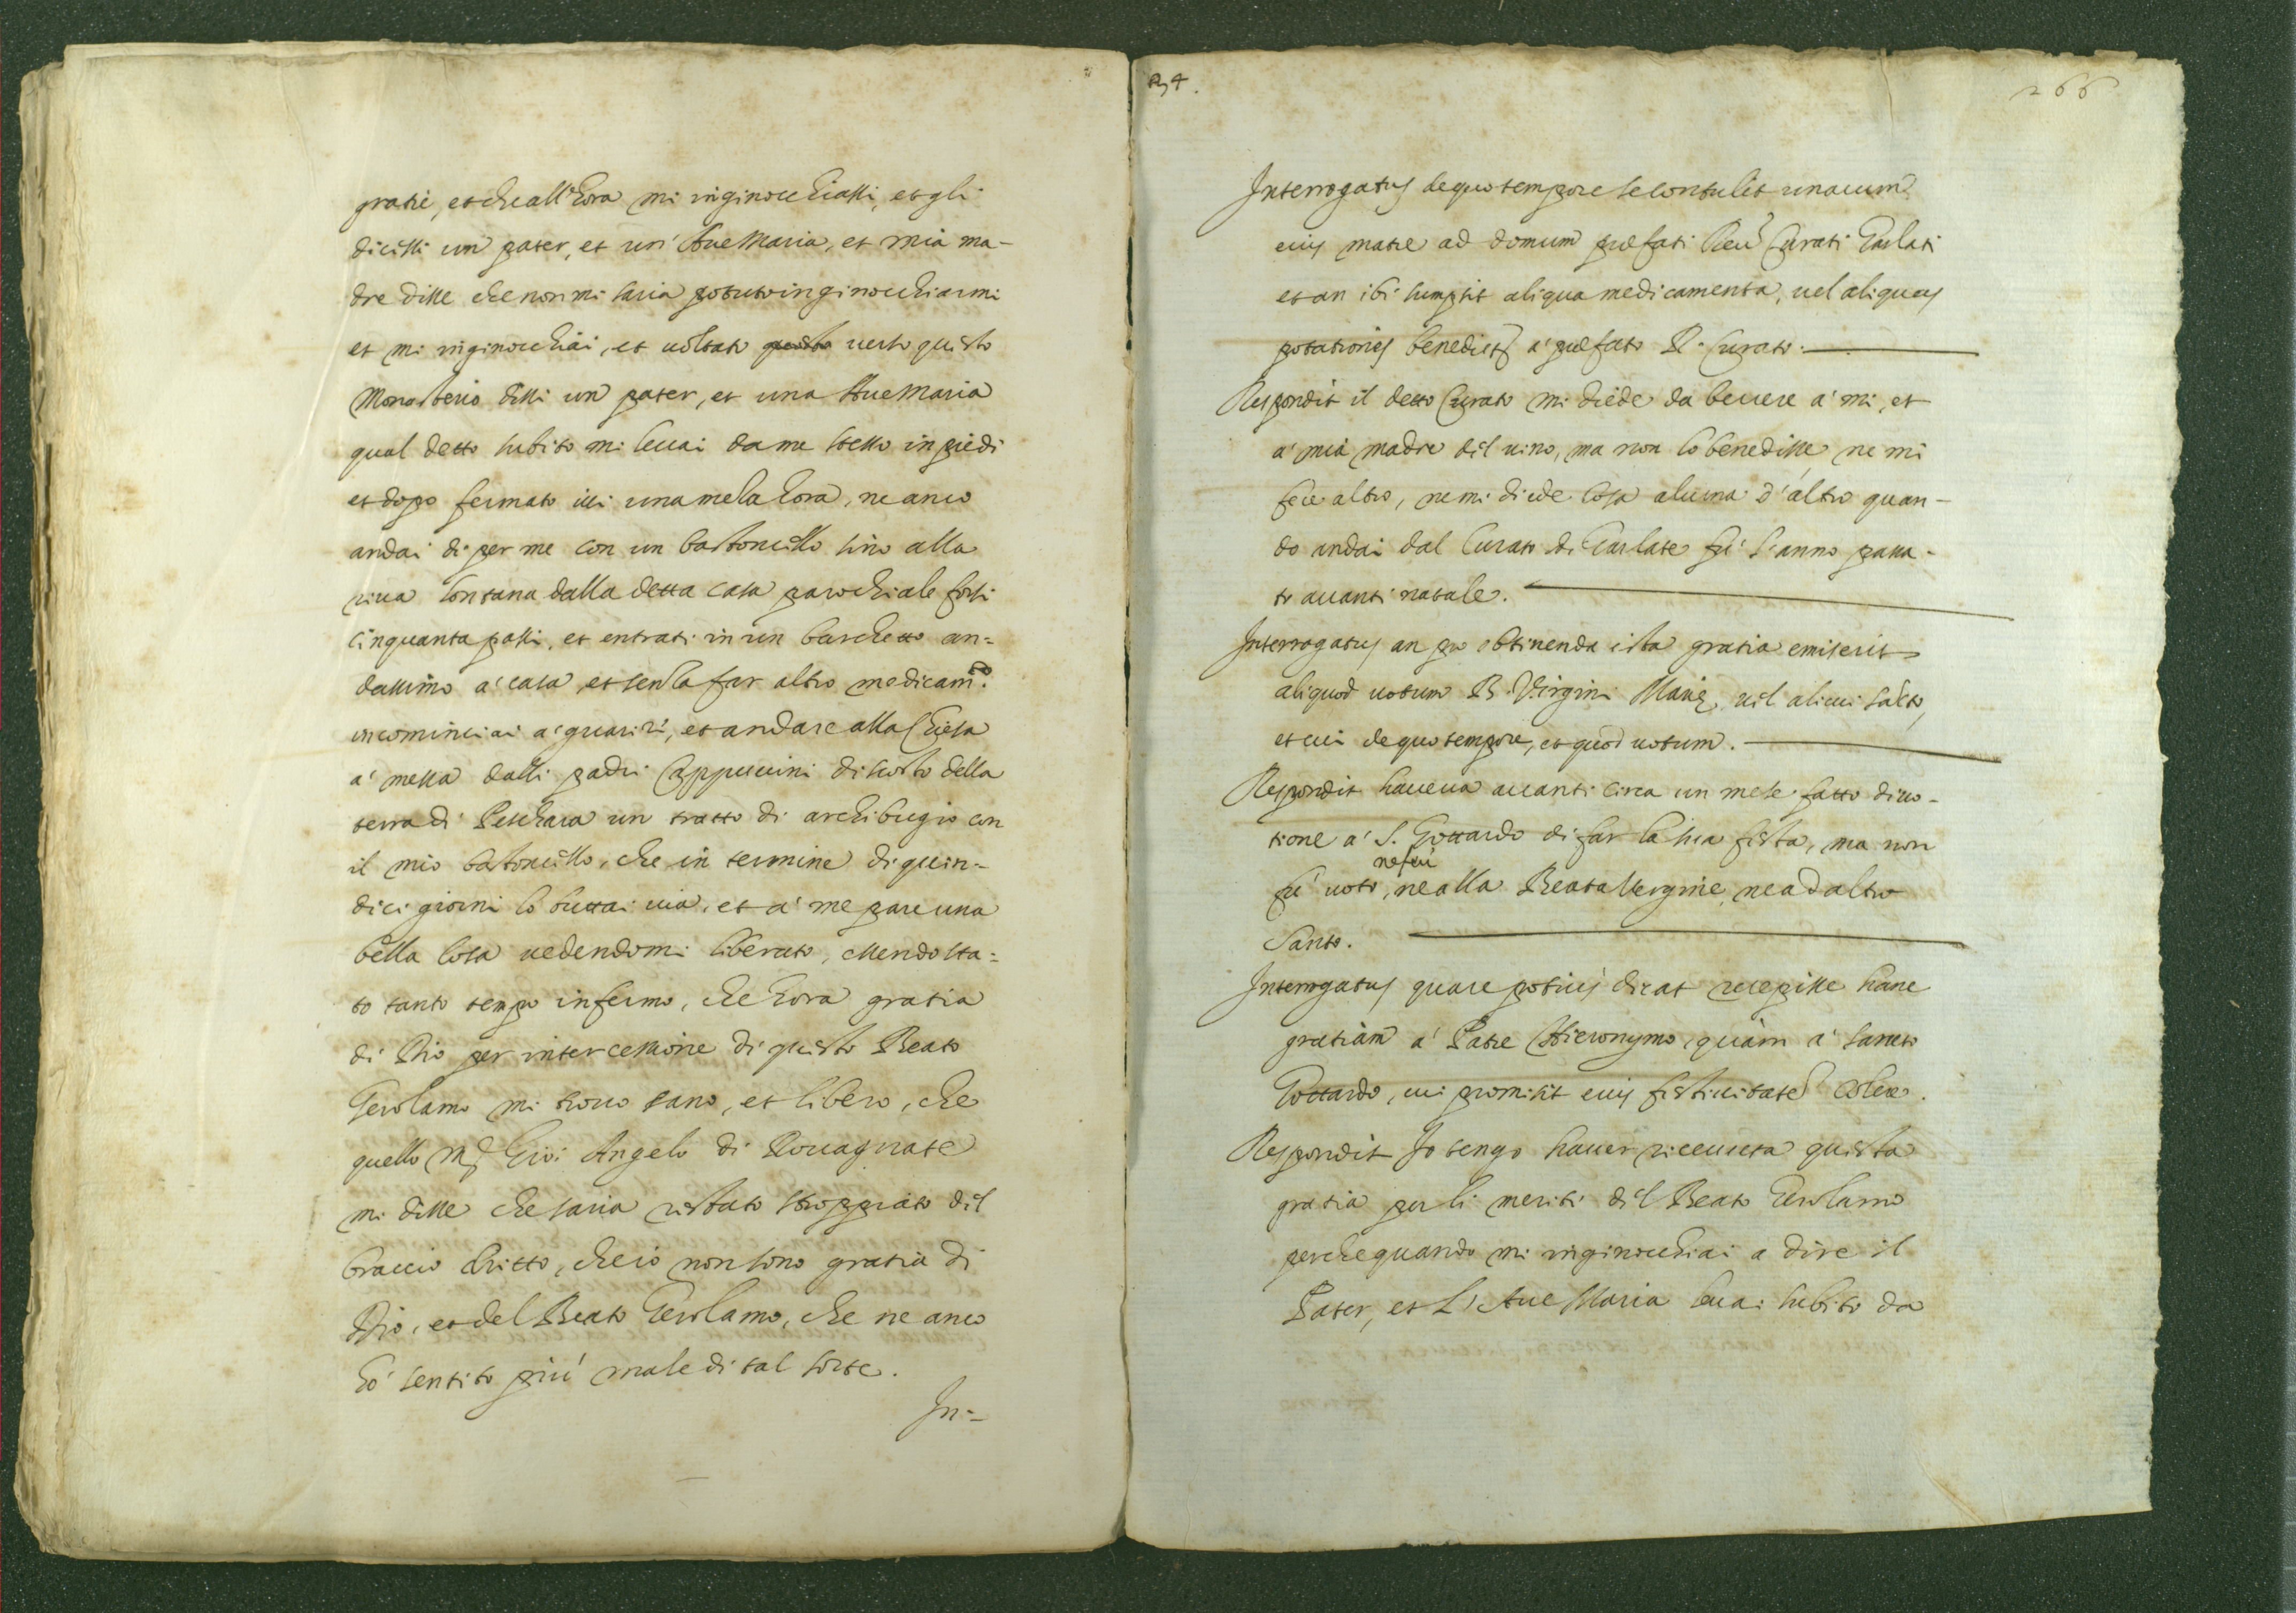 gratie, et che all'hora mi inginocchiassi, et gli
dicessi un pater, et un' Aue Maria, et mia ma-
dre disse che non mi saria potuto inginocchiarmi
et mi inginocchiai, et uoltato questo uerso questo
Monasterio dissi un pater, et una Aue Maria
qual detto subito mi leuai da me stesso in piedi
et dopo fermato iui una meza hora, ne anco
andai di per me con un bastoncello sino alla
riua lontana dalla detta casa parochiale forsi
cinquanta passi, et entrati in un barchetto an-
dassimo à casa, et senza far altro medicam.to
incominciai à guarire, et andare alla Chiesa
à messa dalli padri Cappuccini discosto della
terra di Peschara un tratto di archibugio con
il mio bastoncello, che in termine di quin-
dici giorni lo buttai uia, et à me pare una
bella cosa uedendomi liberato, essendo sta-
to tanto tempo infermo, che hora gratia
di Dio per intercessione di questo Beato
Gerolamo mi trouo sano, et libero, che
quello Gio: Angelo di Rouagnate
mi disse che saria restato stroppiato del
braccio dritto, che io non sono gratia di
Dio, et del Beato Gerolamo, che ne anco
hò sentito più male di tal sorte.
In-
34.
266
Interrogatus de quo tempore se contulit una cum
eius matre ad domum præfati Reu. Curati Garlati
et an ibi sumpsit aliqua medicamenta, uel aliquas
potationes benedictas à præfato R. Curato.
Respondit il detto Curato mi diede da beuere à mi, et
à mia madre del uino, ma non lo benedisse, ne mi
fece altro, ne mi diede cosa alcuna d'altro quan-
do andai dal Curato di Garlate fu l'anno passa-
to auanti natale.
Interrogatus an pro obtinenda ista gratia emiserit
aliquod uotum B. Virgini Mariæ, uel alicui santo,
et cui de quo tempore, et quod uotum.
Respondit haueua auanti circa un mese fatto diuo-
tione à S. Gottardo di far la sua festa, ma non
ne feci
fu uoto, ne alla Beata Vergine, ne ad altro
Santo.
Interrogatus quare potius dicat recepisse hanc
gratiam à Patre Hieronymo, quàm à sancto
Gottardo, cui promisit eius festiuitatem colere.
Respondit Io tengo hauer riceuuta questa
gratia per li meriti del Beato Gerolamo
perche quando mi inginocchiai a dire il
Pater, et L'Aue Maria leuai subito da